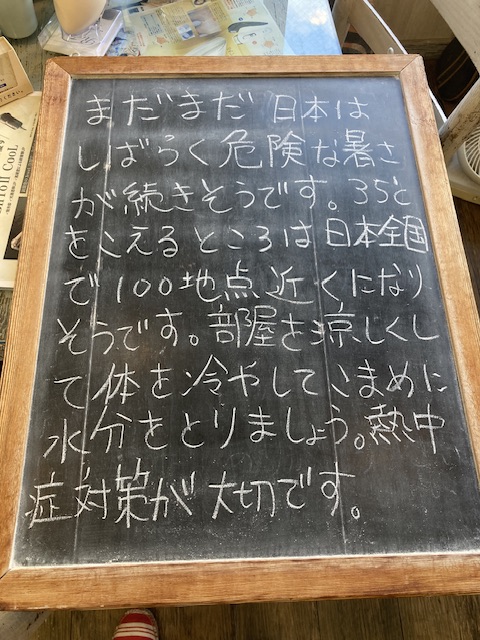 まだまだ 日本は
しばらく危険な暑さ
が続きそうです。35ど
をこえるところは日本全国
で100地点近くになり
そうです。部屋を涼じくし
て体を冷やしてこまめに
水分をとりましょう。熱中
症対策が大切です。
Cool